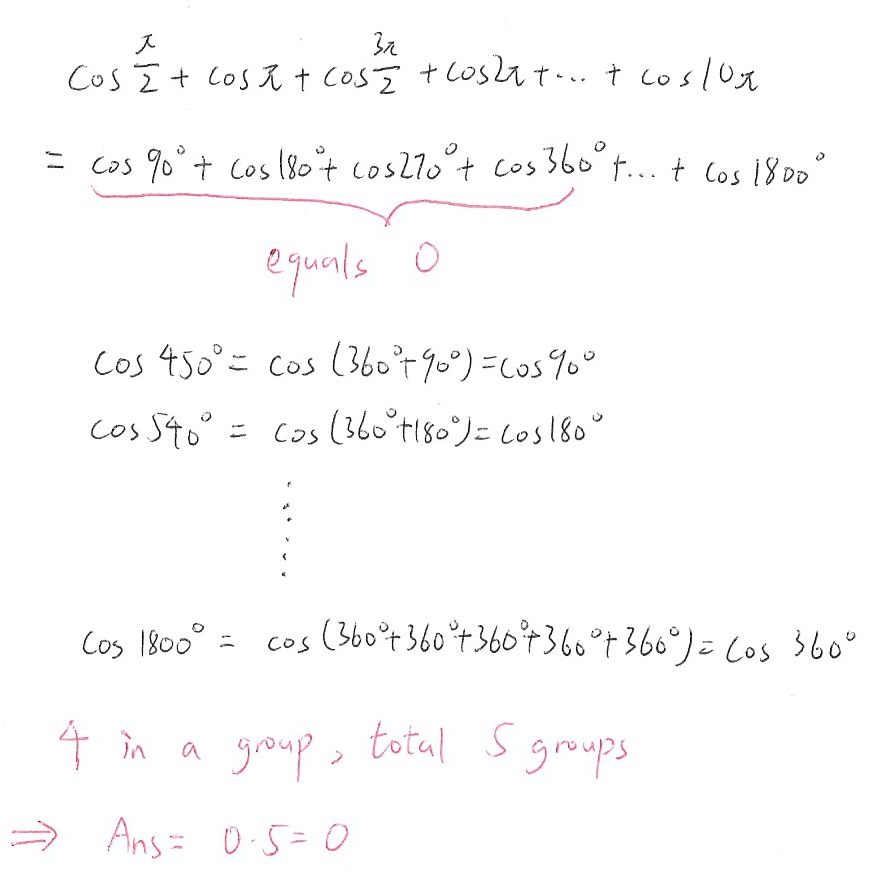 cos π/2 + cos π + cos 3π/2 + cos 2π + ... + cos 10π
= cos 90° + cos 180° + cos 270° + cos 360° + ... + cos 1800°
equals 0
cos 450° = cos (360° + 90°) = cos 90°
cos 540° = cos (360° + 180°) = cos 180°
......
cos 1800° = cos (360° + 360° + 360° + 360° + 360°) = cos 360°
4 in a group, total 5 groups
⇒ Ans = 0·5 = 0